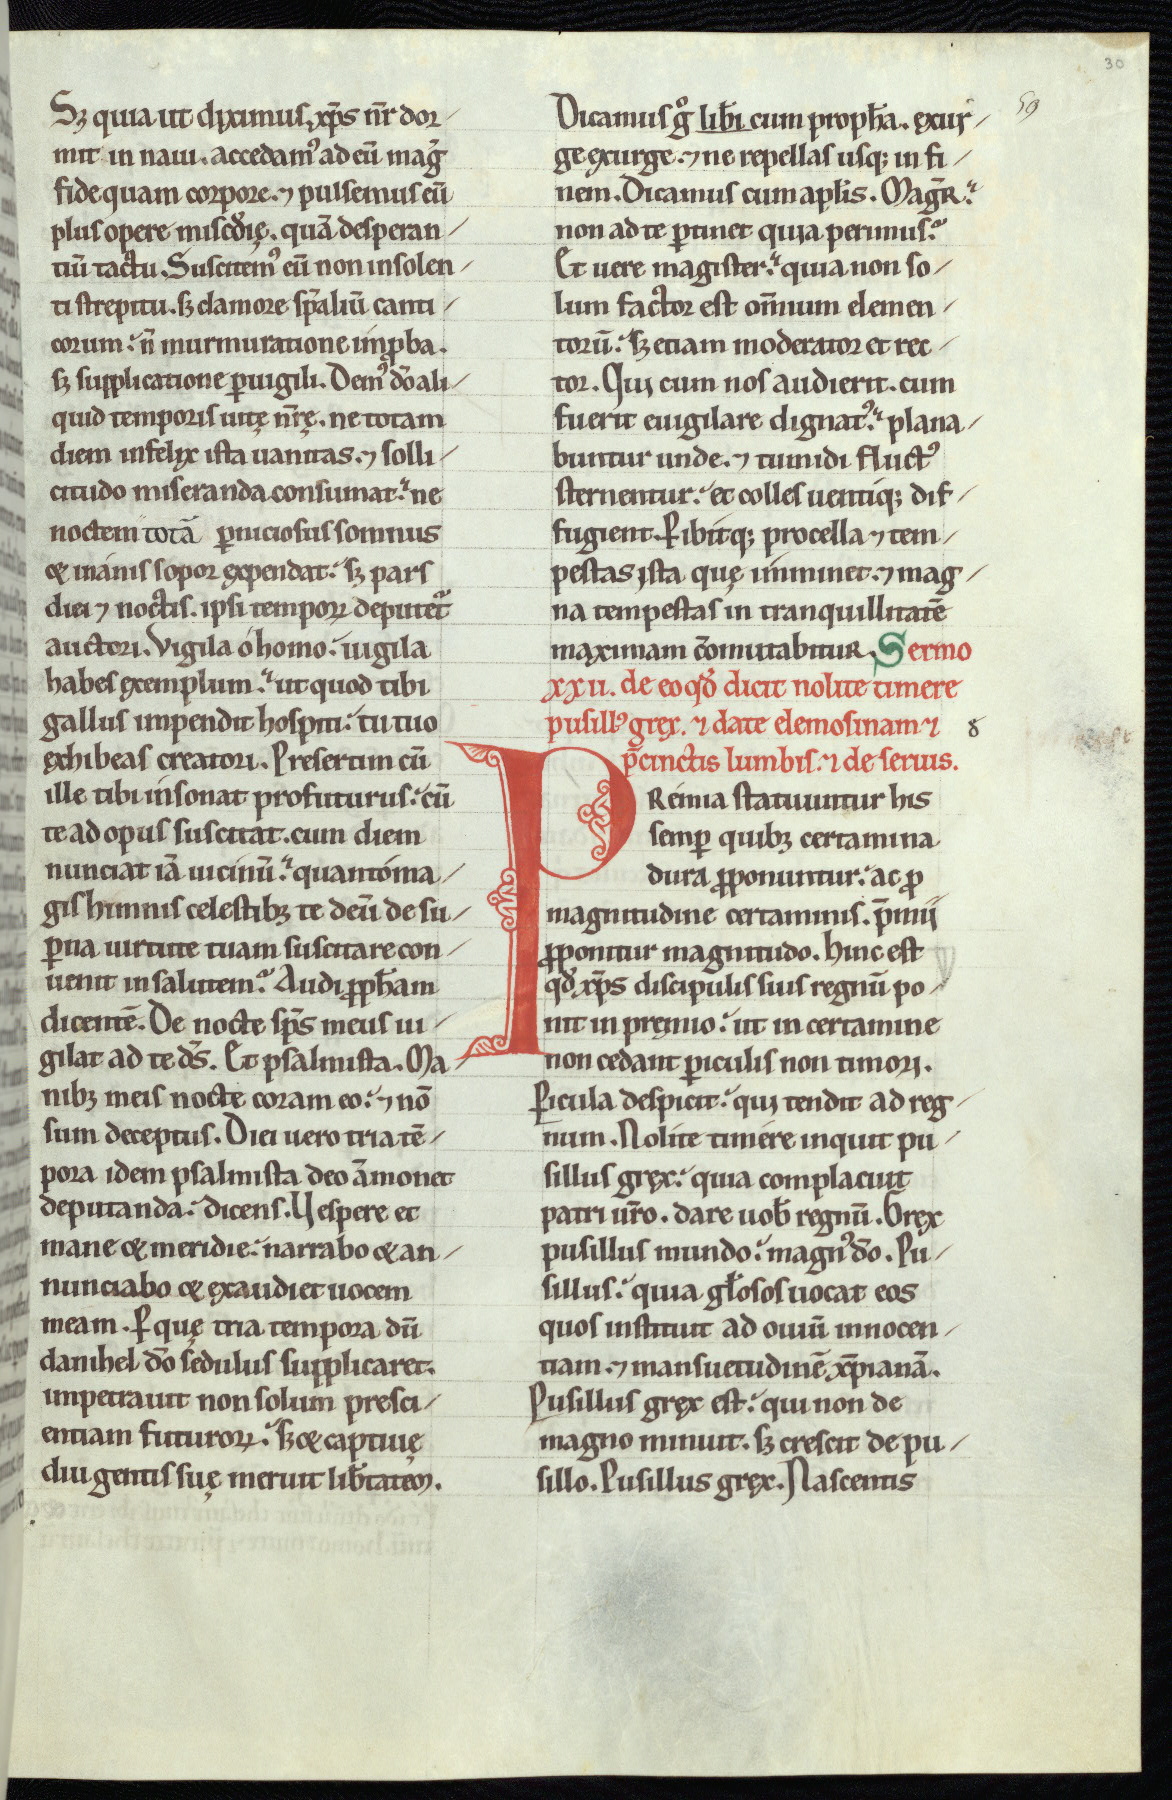 30
59
Sꝫ quia ut diximus, xp̄s nr̄ dor-
mit in naui. accedamꝰ ad eū mag̉
fide quam corpore. ⁊ pulsemus eū
plus opere mīsedię. quā desperan-
tiū tactu. Suscitemꝰ eū non insolen-
ti strepitu. sꝫ clamore sp̄aliū canti-
corum: n̄ murmuratione improba.
sꝫ supplicatione ꝑuigili. Demꝰ dō ali-
quid temporis uitę nr̄ę. ne totam
diem infelix ista uanitas. ⁊ solli-
citudo miseranda consumat: ne
noctem totā ꝑniciosus somnus
& inanis sopor expendat: sꝫ pars
diei ⁊ noctis. ipsi temporꝝ deputet̃
auctori. Vigila o homo: uigila
habes exemplum: ut quod tibi
gallus impendit hospiti: tu tuo
exhibeas creatori. Presertim cū
ille tibi insonat profuturus: cū
te ad opus suscitat. cum diem
nunciat iā uicinū: quanto ma-
gis himnis celestibꝫ te deū de su-
ꝑna uirtute tuam suscitare con-
uenit in salutem? Audi ꝓph̄am
dicentē. De nocte sp̄s meus ui-
gilat ad te dꝰs. Et psalmista. Ma-
nibꝫ meis nocte coram eo: ⁊ nō
sum deceptus. Diei uero tria tē-
pora idem psalmista deo āmonet
deputanda: dicens. Vespere et
mane & meridie: narrabo & an-
nunciabo & exaudiet uocem
meam. Ꝑ quę tria tempora dū
danihel dō sedulus supplicaret.
impetrauit non solum presci-
entiam futurorꝝ: sꝫ & captiuę
diu gentis suę meruit lib̄tatem.
Dicamus g̊ lib̄i cum proph̄a. exur-
ge exurge. ⁊ ne repellas usqꝫ in fi-
nem. Dicamus cum aplis. Mag̅r:
non ad te ꝑtinet quia perimus?
Et uere magister: quia non so-
lum factor est om̄ium elemen-
torū: sꝫ etiam moderator et rec-
tor. Qui cum nos audierit. cum
fuerit euigilare dignatꝰ: plana-
buntur unde. ⁊ tumidi fluctꝰ
sternentur: et colles uentiqꝫ dif-
fugient. Ꝑibitqꝫ procella ⁊ tem-
pestas ista quę imminet. ⁊ mag-
na tempestas in tranquillitatē
maximam cōmutabitur. Sermo
xxii. de eo qd̄ dicit nolite timere
pusillꝰ grex. ⁊ date elemosinam ⁊
p̄cinctis lumbis: ⁊ de seruis.
PRemia statuuntur his
semꝑ quibꝫ certamina
dura ꝓponuntur: ac ꝓ
magnitudine certaminis. p̄mii
ꝓponitur magnitudo. hinc est
qd̄ xp̄s discipulis suis regnū po-
nit in premio: ut in certamine
non cedant ꝑiculis non timori.
Ꝑicula despicit: qui tendit ad reg-
num. Nolite timere inquit pu-
sillus grex: quia complacuit
patri ur̄o. dare uob̄ regnū. Grex
pusillus mundo: magnꝰ dō. Pu-
sillus: quia gl̄osos uocat eos
quos instituit ad ouiū innocen-
tiam. ⁊ mansuetudinē xp̄ianā.
Pusillus grex est: qui non de
magno minuit. sꝫ crescit de pu-
sillo. Pusillus grex. Nascentis